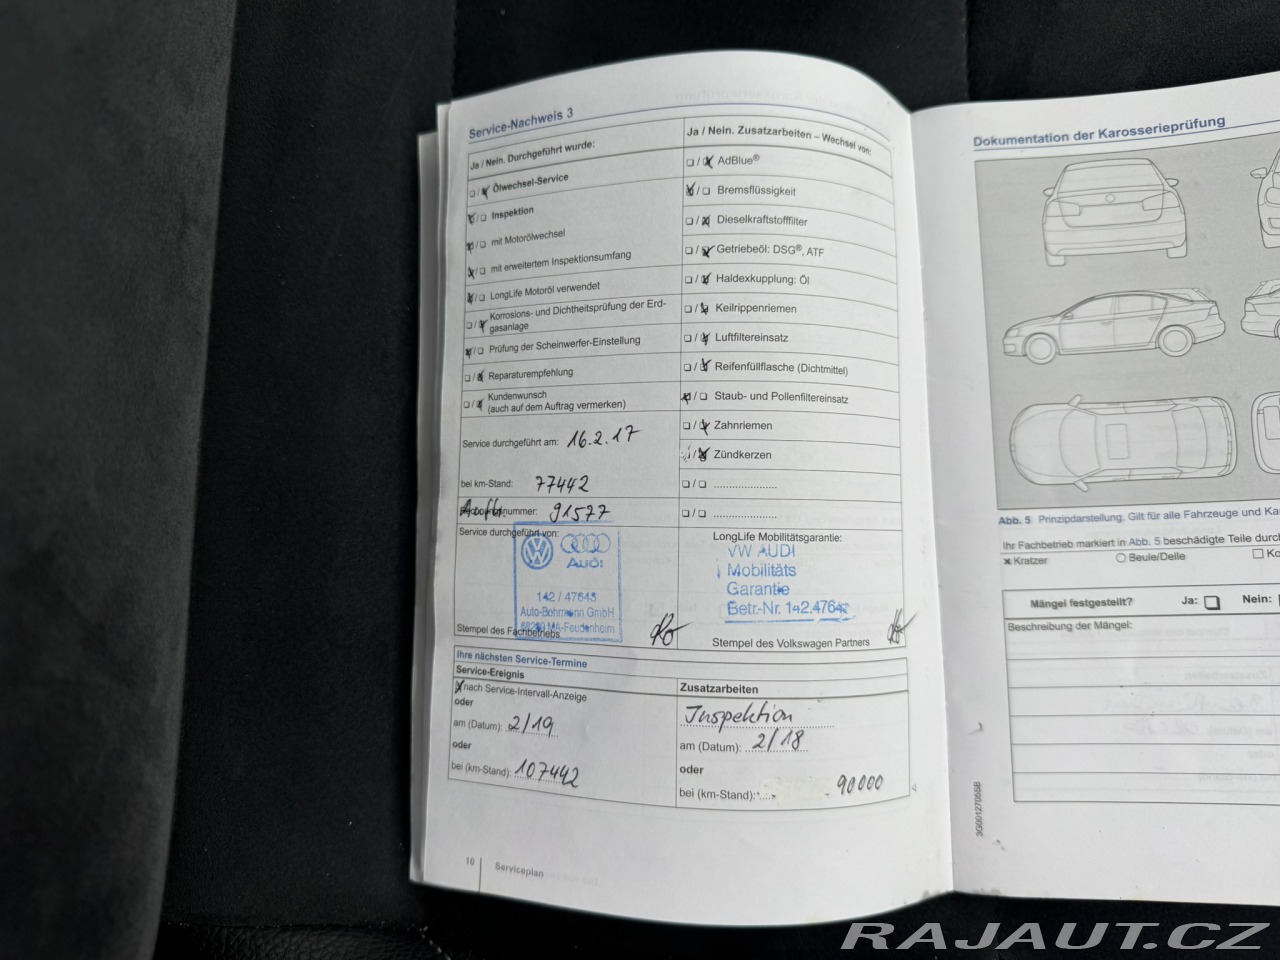 Service-Nachweis 3
Ja / Nein. Durchgeführt wurde:
Ölwechsel-Service
Inspektion
mit Motorölwechsel
mit erweitertem Inspektionsumfang
LongLife Motoröl verwendet
Korrosions- und Dichtheitsprüfung der Erd-
gasanlage
Prüfung der Scheinwerfer-Einstellung
Reparaturempfehlung
Kundenwunsch
(auch auf dem Auftrag vermerken)
Service durchgeführt am: 16.2.17
bei km-Stand: 77442
nummer: 91577
Service durchgeführt von:
Audi
142 / 47643
Auto-Bohrmann GmbH
MA-Feudenheim
Stempel des Fachbetriebs
Ja / Nein. Zusatzarbeiten – Wechsel von:
AdBlue®
Bremsflüssigkeit
Dieselkraftstofffilter
Getriebeöl: DSG®, ATF
Haldexkupplung: Öl
Keilrippenriemen
Luftfiltereinsatz
Reifenfüllflasche (Dichtmittel)
Staub- und Pollenfiltereinsatz
Zahnriemen
Zündkerzen
LongLife Mobilitätsgarantie:
VW AUDI
Mobilitäts
Garantie
Betr.-Nr. 142.4764
Stempel des Volkswagen Partners
Ihre nächsten Service-Termine
Service-Ereignis
nach Service-Intervall-Anzeige
oder
am (Datum): 2/19
oder
bei (km-Stand): 107442
Zusatzarbeiten
Inspektion
am (Datum): 2/18
oder
bei (km-Stand): 90000
10
Serviceplan
Dokumentation der Karosserieprüfung
Abb. 5 Prinzipdarstellung: Gilt für alle Fahrzeuge und
Ihr Fachbetrieb markiert in Abb. 5 beschädigte Teile durch
Kratzer
Beule/Delle
Mängel festgestellt? Ja: Nein:
Beschreibung der Mängel:
3G0012705SB
RAJAUT.CZ